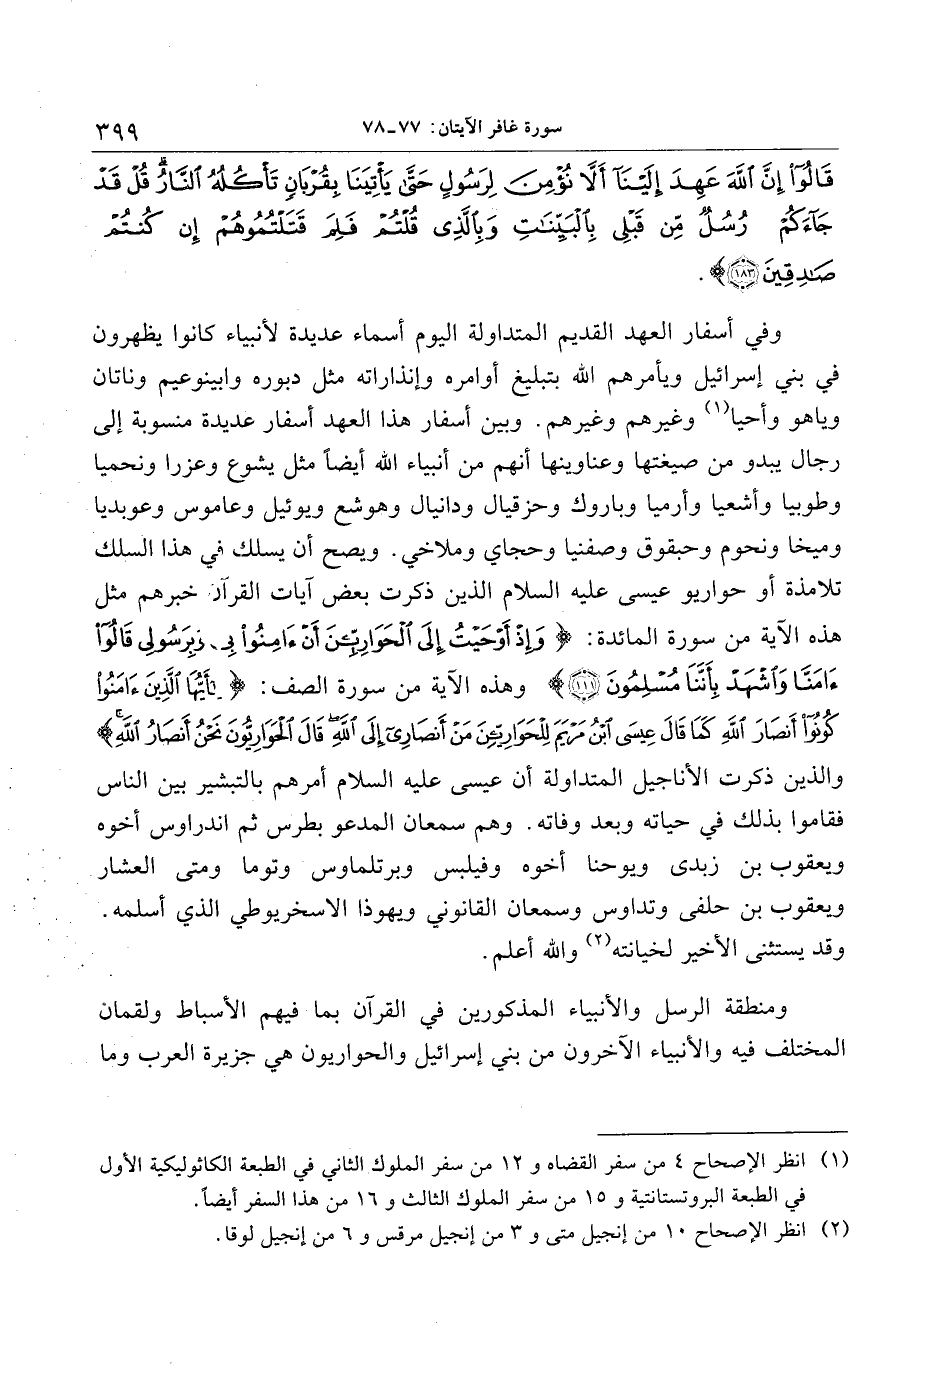 سورة غافر الآيتان: ٧٧-٧٨ ٣٩٩
قَالُوٓا۟ إِنَّ ٱللَّهَ عَهِدَ إِلَيْنَآ أَلَّا نُؤْمِنَ لِرَسُولٍ حَتَّىٰ يَأْتِيَنَا بِقُرْبَانٍ تَأْكُلُهُ ٱلنَّارُ ۗ قُلْ قَدْ
جَآءَكُمْ رُسُلٌ مِّن قَبْلِى بِٱلْبَيِّنَٰتِ وَبِٱلَّذِى قُلْتُمْ فَلِمَ قَتَلْتُمُوهُمْ إِن كُنتُمْ
صَٰدِقِينَ ﴿١٨٣﴾ ﴾ .
وفي أسفار العهد القديم المتداولة اليوم أسماء عديدة لأنبياء كانوا يظهرون
في بني إسرائيل ويأمرهم الله بتبليغ أوامره وإنذاراته مثل دبوره وابينوعيم وناتان
وياهو وأحيا(١) وغيرهم وغيرهم. وبين أسفار هذا العهد أسفار عديدة منسوبة إلى
رجال يبدو من صيغتها وعناوينها أنهم من أنبياء الله أيضاً مثل يشوع وعزرا ونحميا
وطوبيا وأشعيا وأرميا وباروك وحزقيال ودانيال وهوشع ويوئيل وعاموس وعوبديا
وميخا ونحوم وحبقوق وصفنيا وحجاي وملاخي. ويصح أن يسلك في هذا السلك
تلامذة أو حواريو عيسى عليه السلام الذين ذكرت بعض آيات القرآن خبرهم مثل
هذه الآية من سورة المائدة: ﴿ وَإِذْ أَوْحَيْتُ إِلَى ٱلْحَوَارِيِّـۧنَ أَنْ ءَامِنُوا۟ بِى وَبِرَسُولِى قَالُوٓا۟
ءَامَنَّا وَٱشْهَدْ بِأَنَّنَا مُسْلِمُونَ ﴿١١١﴾ ﴾ وهذه الآية من سورة الصف: ﴿ يَٰٓأَيُّهَا ٱلَّذِينَ ءَامَنُوا۟
كُونُوٓا۟ أَنصَارَ ٱللَّهِ كَمَا قَالَ عِيسَى ٱبْنُ مَرْيَمَ لِلْحَوَارِيِّـۧنَ مَنْ أَنصَارِىٓ إِلَى ٱللَّهِ ۖ قَالَ ٱلْحَوَارِيُّونَ نَحْنُ أَنصَارُ ٱللَّهِ ۖ ﴾
والذين ذكرت الأناجيل المتداولة أن عيسى عليه السلام أمرهم بالتبشير بين الناس
فقاموا بذلك في حياته وبعد وفاته. وهم سمعان المدعو بطرس ثم اندراوس أخوه
ويعقوب بن زبدى ويوحنا أخوه وفيلبس وبرتلماوس وتوما ومتى العشار
ويعقوب بن حلفى وتداوس وسمعان القانوني ويهوذا الاسخريوطي الذي أسلمه.
وقد يستثنى الأخير لخيانته(٢) والله أعلم.
ومنطقة الرسل والأنبياء المذكورين في القرآن بما فيهم الأسباط ولقمان
المختلف فيه والأنبياء الآخرون من بني إسرائيل والحواريون هي جزيرة العرب وما
(١) انظر الإصحاح ٤ من سفر القضاه و ١٢ من سفر الملوك الثاني في الطبعة الكاثوليكية الأول
في الطبعة البروتستانتية و ١٥ من سفر الملوك الثالث و ١٦ من هذا السفر أيضاً.
(٢) انظر الإصحاح ١٠ من إنجيل متى و ٣ من إنجيل مرقس و ٦ من إنجيل لوقا.